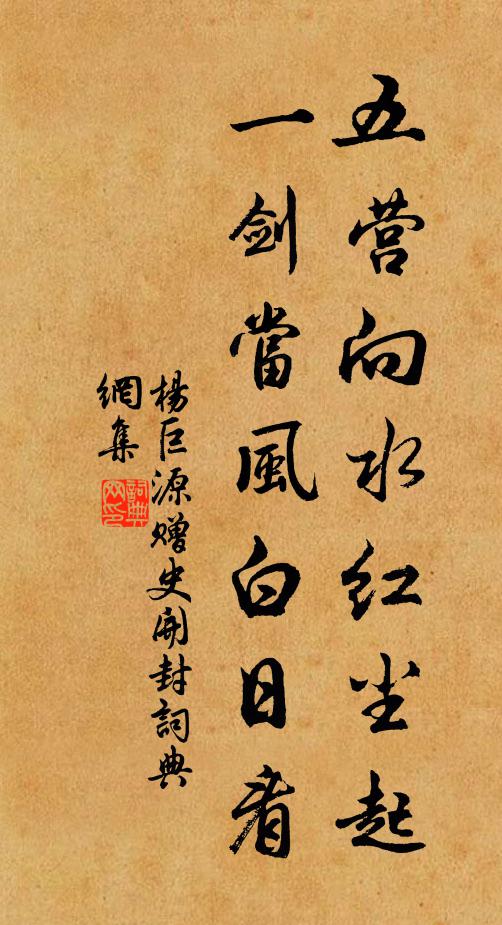 五营向水红尘起
一剑當風白日看
楊巨源赠史開封詞典
網集
詞典
网印